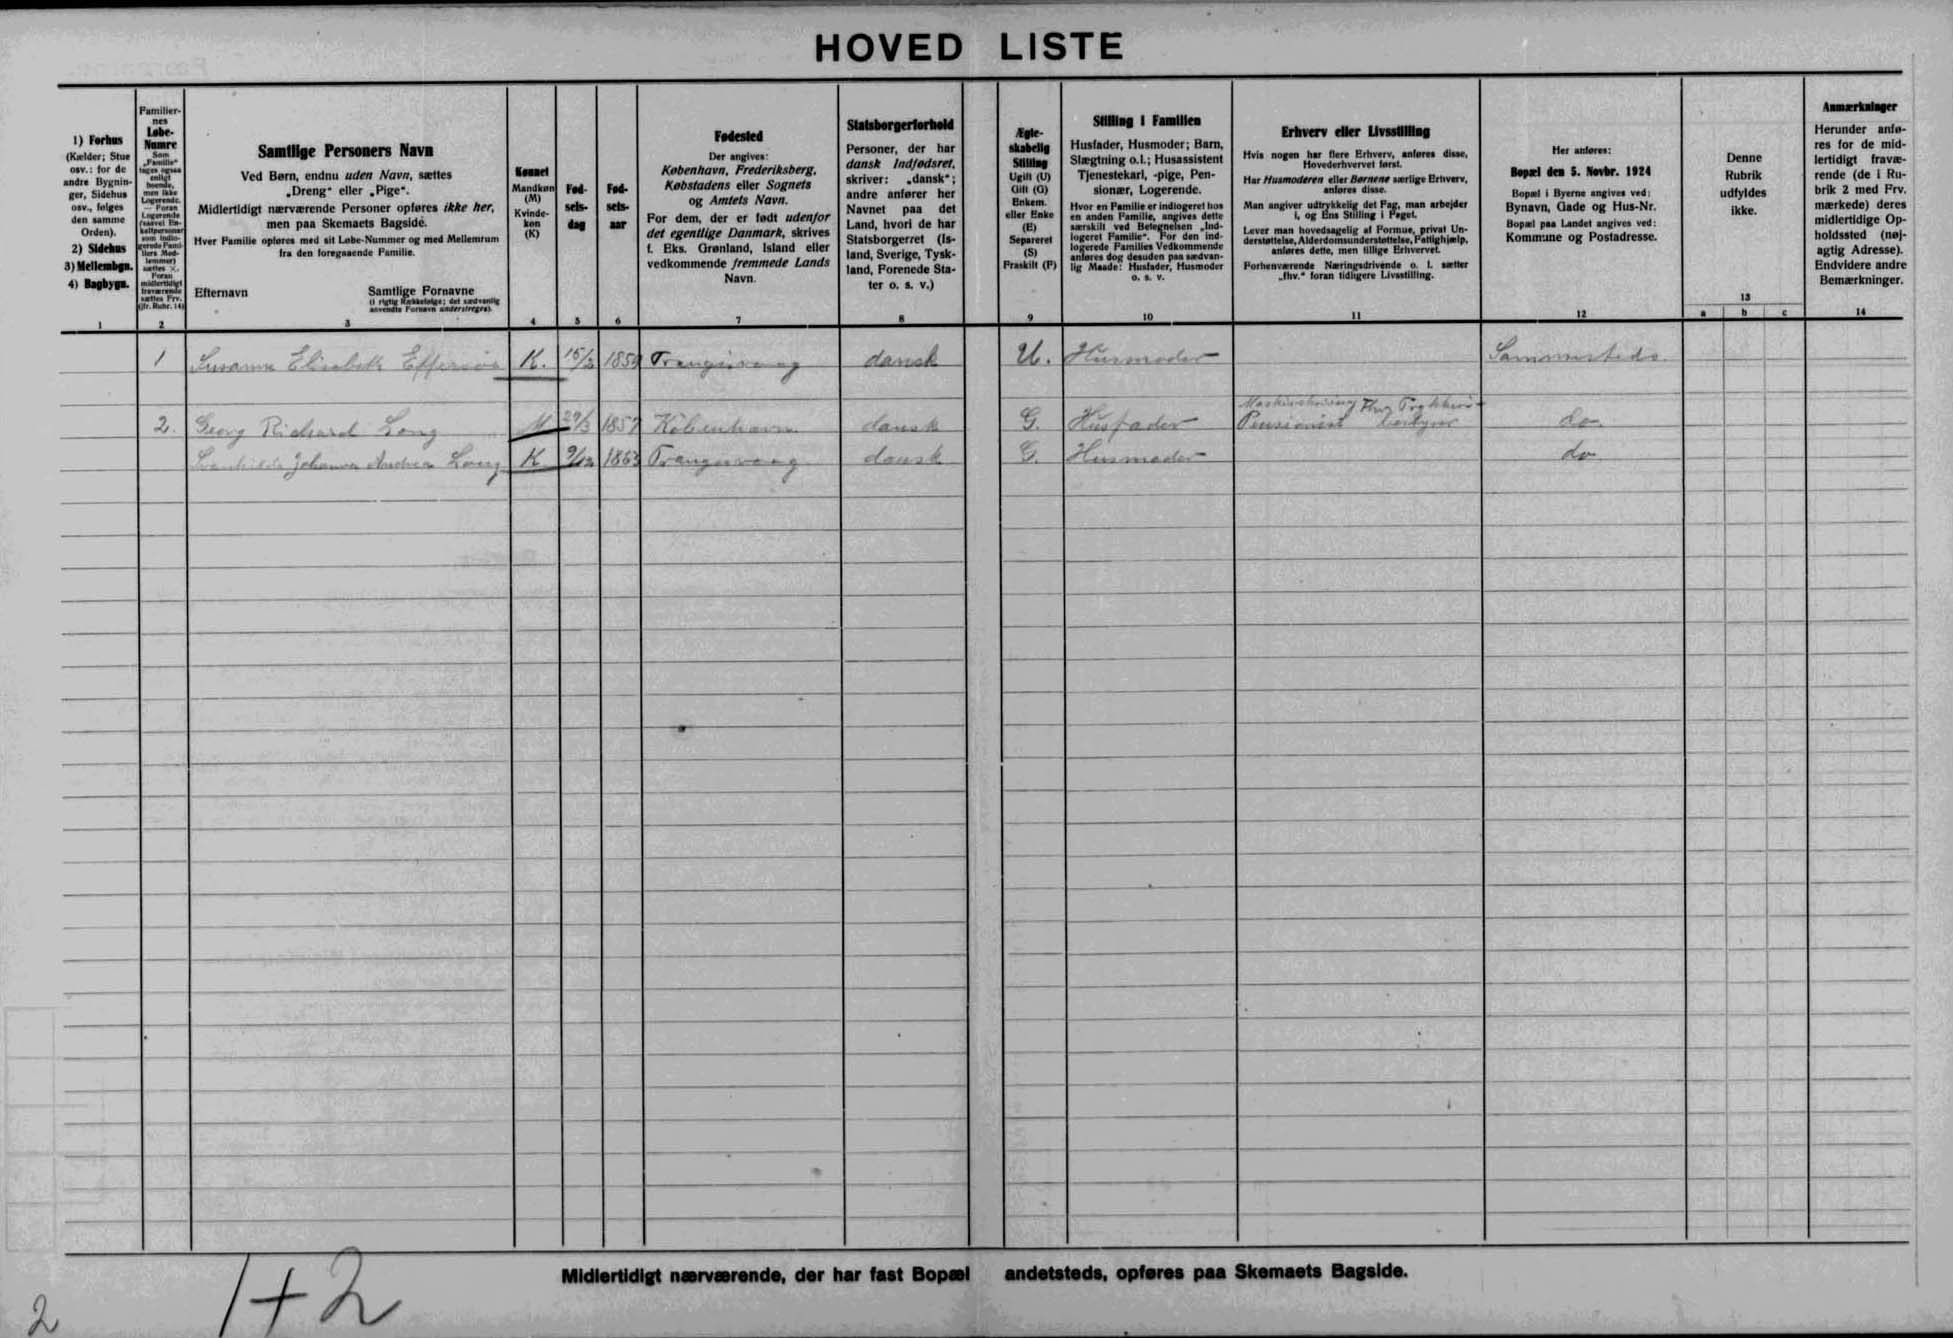 HOVED LISTE
1) Forhus
(Kælder; Stue
osv.: for de
andre Bygnin-
ger, Sidehus
osv., følges
den samme
Orden).
2) Sidehus
3) Mellembgn.
4) Bagbygn.
1
Familier-
nes
Løbe-
Numre
Som
„Familie“
tages ogsaa
enligt
boende,
men ikke
Logerende.
— Foran
Logerende
(saavel En-
keltpersoner
som indlo-
gerede Fami-
liers Med-
lemmer)
sættes ×.
Foran
midlertidigt
fraværende
sættes Frv.
(jfr. Rubr. 14)
2
Samtlige Personers Navn
Ved Børn, endnu uden Navn, sættes
„Dreng“ eller „Pige“.
Midlertidigt nærværende Personer opføres ikke her,
men paa Skemaets Bagside.
Hver Familie opføres med sit Løbe-Nummer og med Mellemrum
fra den foregaaende Familie.
Efternavn
Samtlige Fornavne
(i rigtig Rækkefølge; det sædvanlig
anvendte Fornavn understreges).
3
Kønnet
Mandkøn
(M)
Kvinde-
køn
(K)
4
Fød-
sels-
dag
5
Fød-
sels-
aar
6
Fødested
Der angives:
København, Frederiksberg,
Købstadens eller Sognets
og Amtets Navn.
For dem, der er født udenfor
det egentlige Danmark, skrives
f. Eks. Grønland, Island eller
vedkommende fremmede Lands
Navn.
7
Statsborgerforhold
Personer, der har
dansk Indfødsret,
skriver: „dansk“;
andre anfører her
Navnet paa det
Land, hvori de har
Statsborgerret (Is-
land, Sverige, Tysk-
land, Forenede Sta-
ter o. s. v.)
8
Ægte-
skabelig
Stilling
Ugift (U)
Gift (G)
Enkem.
eller Enke
(E)
Separeret
(S)
Fraskilt (F)
9
Stilling i Familien
Husfader, Husmoder; Barn,
Slægtning o.l.; Husassistent
Tjenestekarl, -pige, Pen-
sionær, Logerende.
Hvor en Familie er indlogeret hos
en anden Familie, angives dette
særskilt ved Betegnelsen „Ind-
logeret Familie“. For den ind-
logerede Families Vedkommende
anføres dog desuden paa sædvan-
lig Maade: Husfader, Husmoder
o. s. v.
10
Erhverv eller Livsstilling
Hvis nogen har flere Erhverv, anføres disse,
Hovederhvervet først.
Har Husmoderen eller Børnene særlige Erhverv,
anføres disse.
Man angiver udtrykkelig det Fag, man arbejder
i, og Ens Stilling i Faget.
Lever man hovedsagelig af Formue, privat Un-
derstøttelse, Alderdomsunderstøttelse, Fattighjælp,
anføres dette, men tillige Erhvervet.
Forhenværende Næringsdrivende o. l. sætter
„fhv.“ foran tidligere Livsstilling.
11
Her anføres:
Bopæl den 5. Novbr. 1924
Bopæl i Byerne angives ved:
Bynavn, Gade og Hus-Nr.
Bopæl paa Landet angives ved:
Kommune og Postadresse.
12
Denne
Rubrik
udfyldes
ikke.
13
a b c
Anmærkninger
Herunder anfø-
res for de mid-
lertidigt fravæ-
rende (de i Ru-
brik 2 med Frv.
mærkede) deres
midlertidige Op-
holdssted (nøj-
agtig Adresse).
Endvidere andre
Bemærkninger.
14
1 Susanne Elisabeth Effersøe K. 15/2 1859 Trangisvaag dansk U. Husmoder Sammesteds
2. Georg Richard Long M 29/3 1857 København dansk G. Husfader Pensionist do
Johanna Andrea Long K 9/12 1863 Trangisvaag dansk G. Husmoder do
Midlertidigt nærværende, der har fast Bopæl andetsteds, opføres paa Skemaets Bagside.
1+2
2